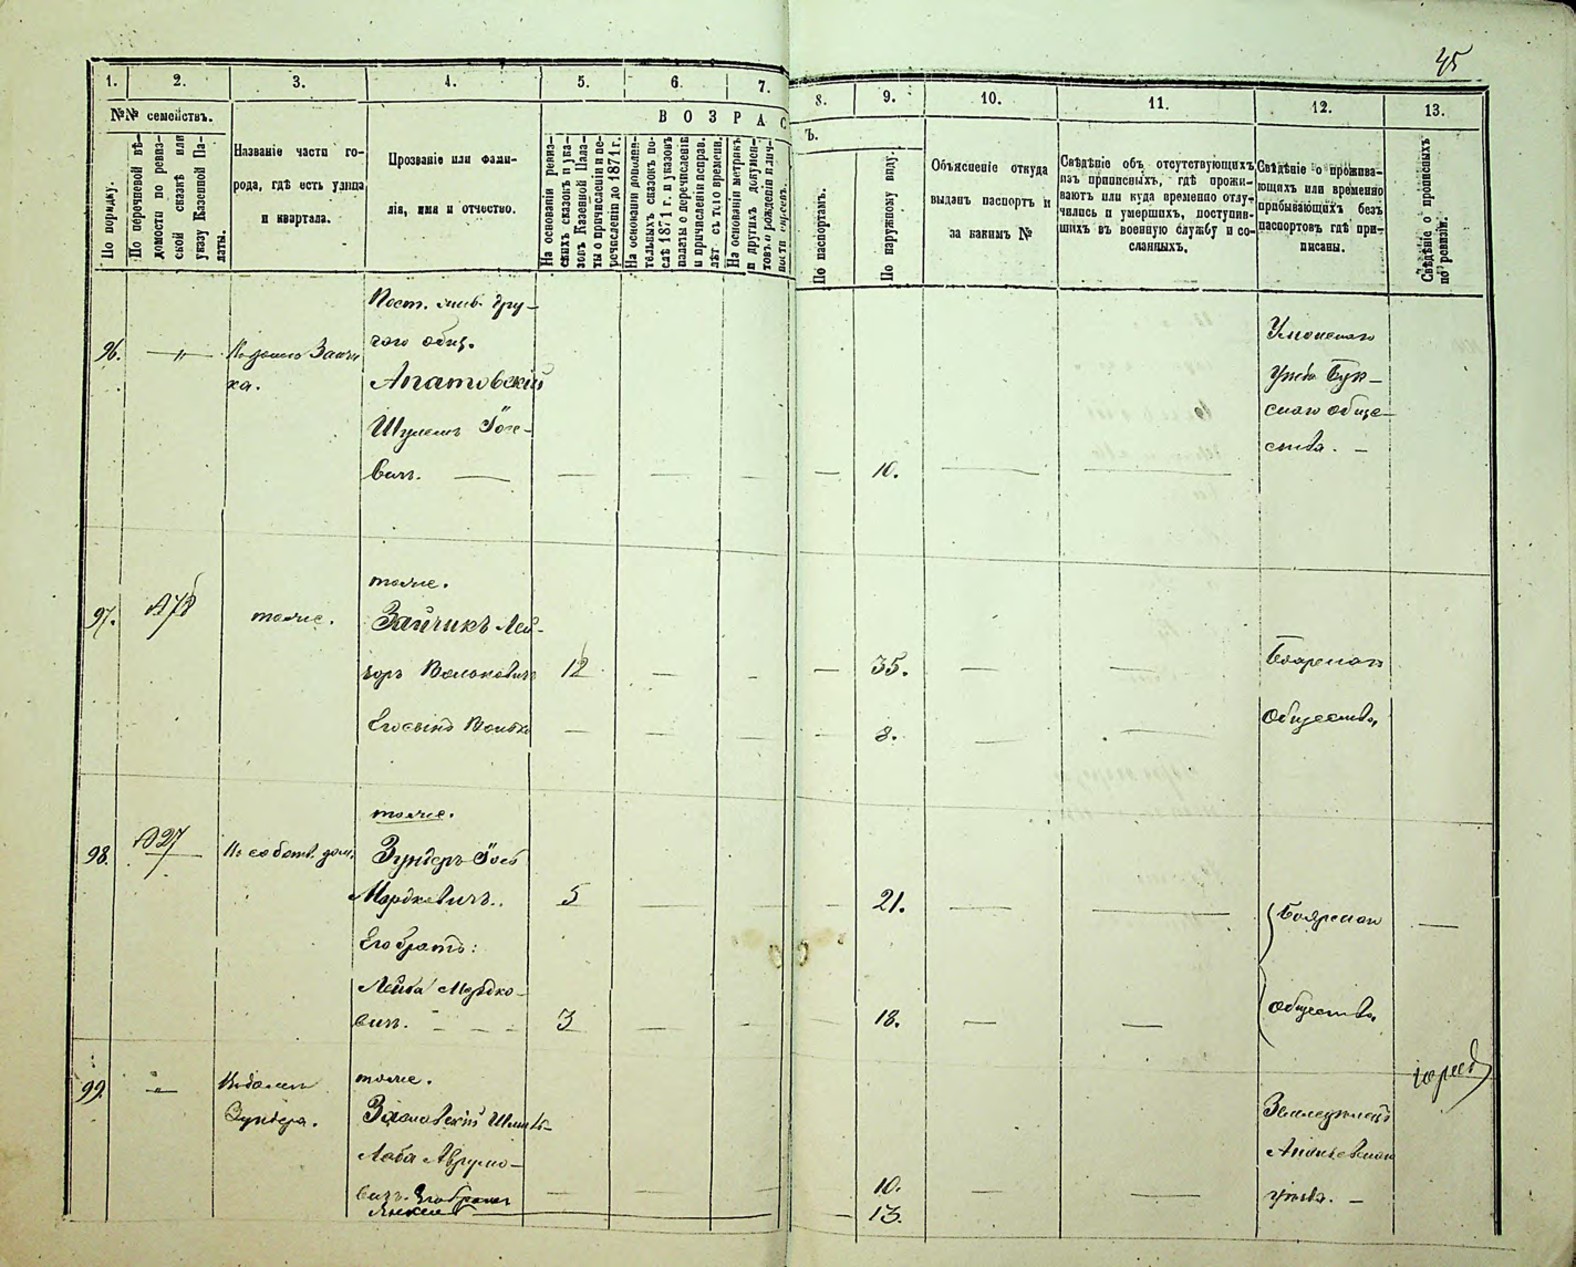 45
1. 2. 3. 4. 5. 6. 7. 8. 9. 10. 11. 12. 13.
№№ семействъ.
По порядку.
По перечневой вѣ-
домости по ревиз-
ской сказкѣ или
указу Казенной Па-
латы.
Названіе части го-
рода, гдѣ есть улица
и квартала.
Прозваніе или фами-
лія, имя и отчество.
ВОЗРАС
Ъ.
На основаніи ревиз-
скихъ сказокъ и ука-
зовъ Казенной Пала-
ты о причисленіи и пе-
речисленіи до 1871 г.
На основаніи дополни-
тельныхъ сказокъ по-
слѣ 1871 г. и указовъ
палаты о перечисленіи
и причисленіи исправ.
лѣт. съ того времени.
На основаніи метрикъ
и другихъ докумен-
товъ о рожденіи и лич-
ности евреевъ.
По паспортамъ.
По наружному виду.
Объясненіе откуда
выданъ паспортъ и
за какимъ №
Свѣдѣніе объ отсутствующихъ
изъ приписныхъ, гдѣ прожи-
ваютъ или куда временно отлу-
чились и умершихъ, поступив-
шихъ въ военную службу и со-
сланныхъ.
Свѣдѣніе о прожива-
ющихъ или временно
прибывающихъ безъ
паспортовъ гдѣ при-
писаны.
Свѣдѣніе о прописныхъ
по ревизіи.
Пост. жив. дру-
гого общ.
96. — „ — Въ домѣ Зайчи
ка.
Апатовскій
Шулемъ Іосе-
вичъ. — — — — — 10. — —
Уманскаго
уѣзда Бук-
скаго обще-
ства. —
тоже.
97. №78 тоже. Зайчикъ Лей-
зоръ Вольковичъ 12 — — — 35. — —
Боярскаго
Его сынъ Волько — — — — 8. — —
Общества,
тоже.
98. №27 Въ собств. дом. Зундеръ Іось
Мордковичъ.. 5 — — — 21. — — Боярскаго —
Его братъ:
Лейба Мордко-
вичъ. — 3 — — — 18. — — общества,
99. — „ — Въ домѣ тоже.
Зундера. Заславскій Шмиль-
Лейба Аврумо-
вичъ. Его братъ — — — 10. — —
Янкель — 13.
Ананьевскаго
уѣзда. —